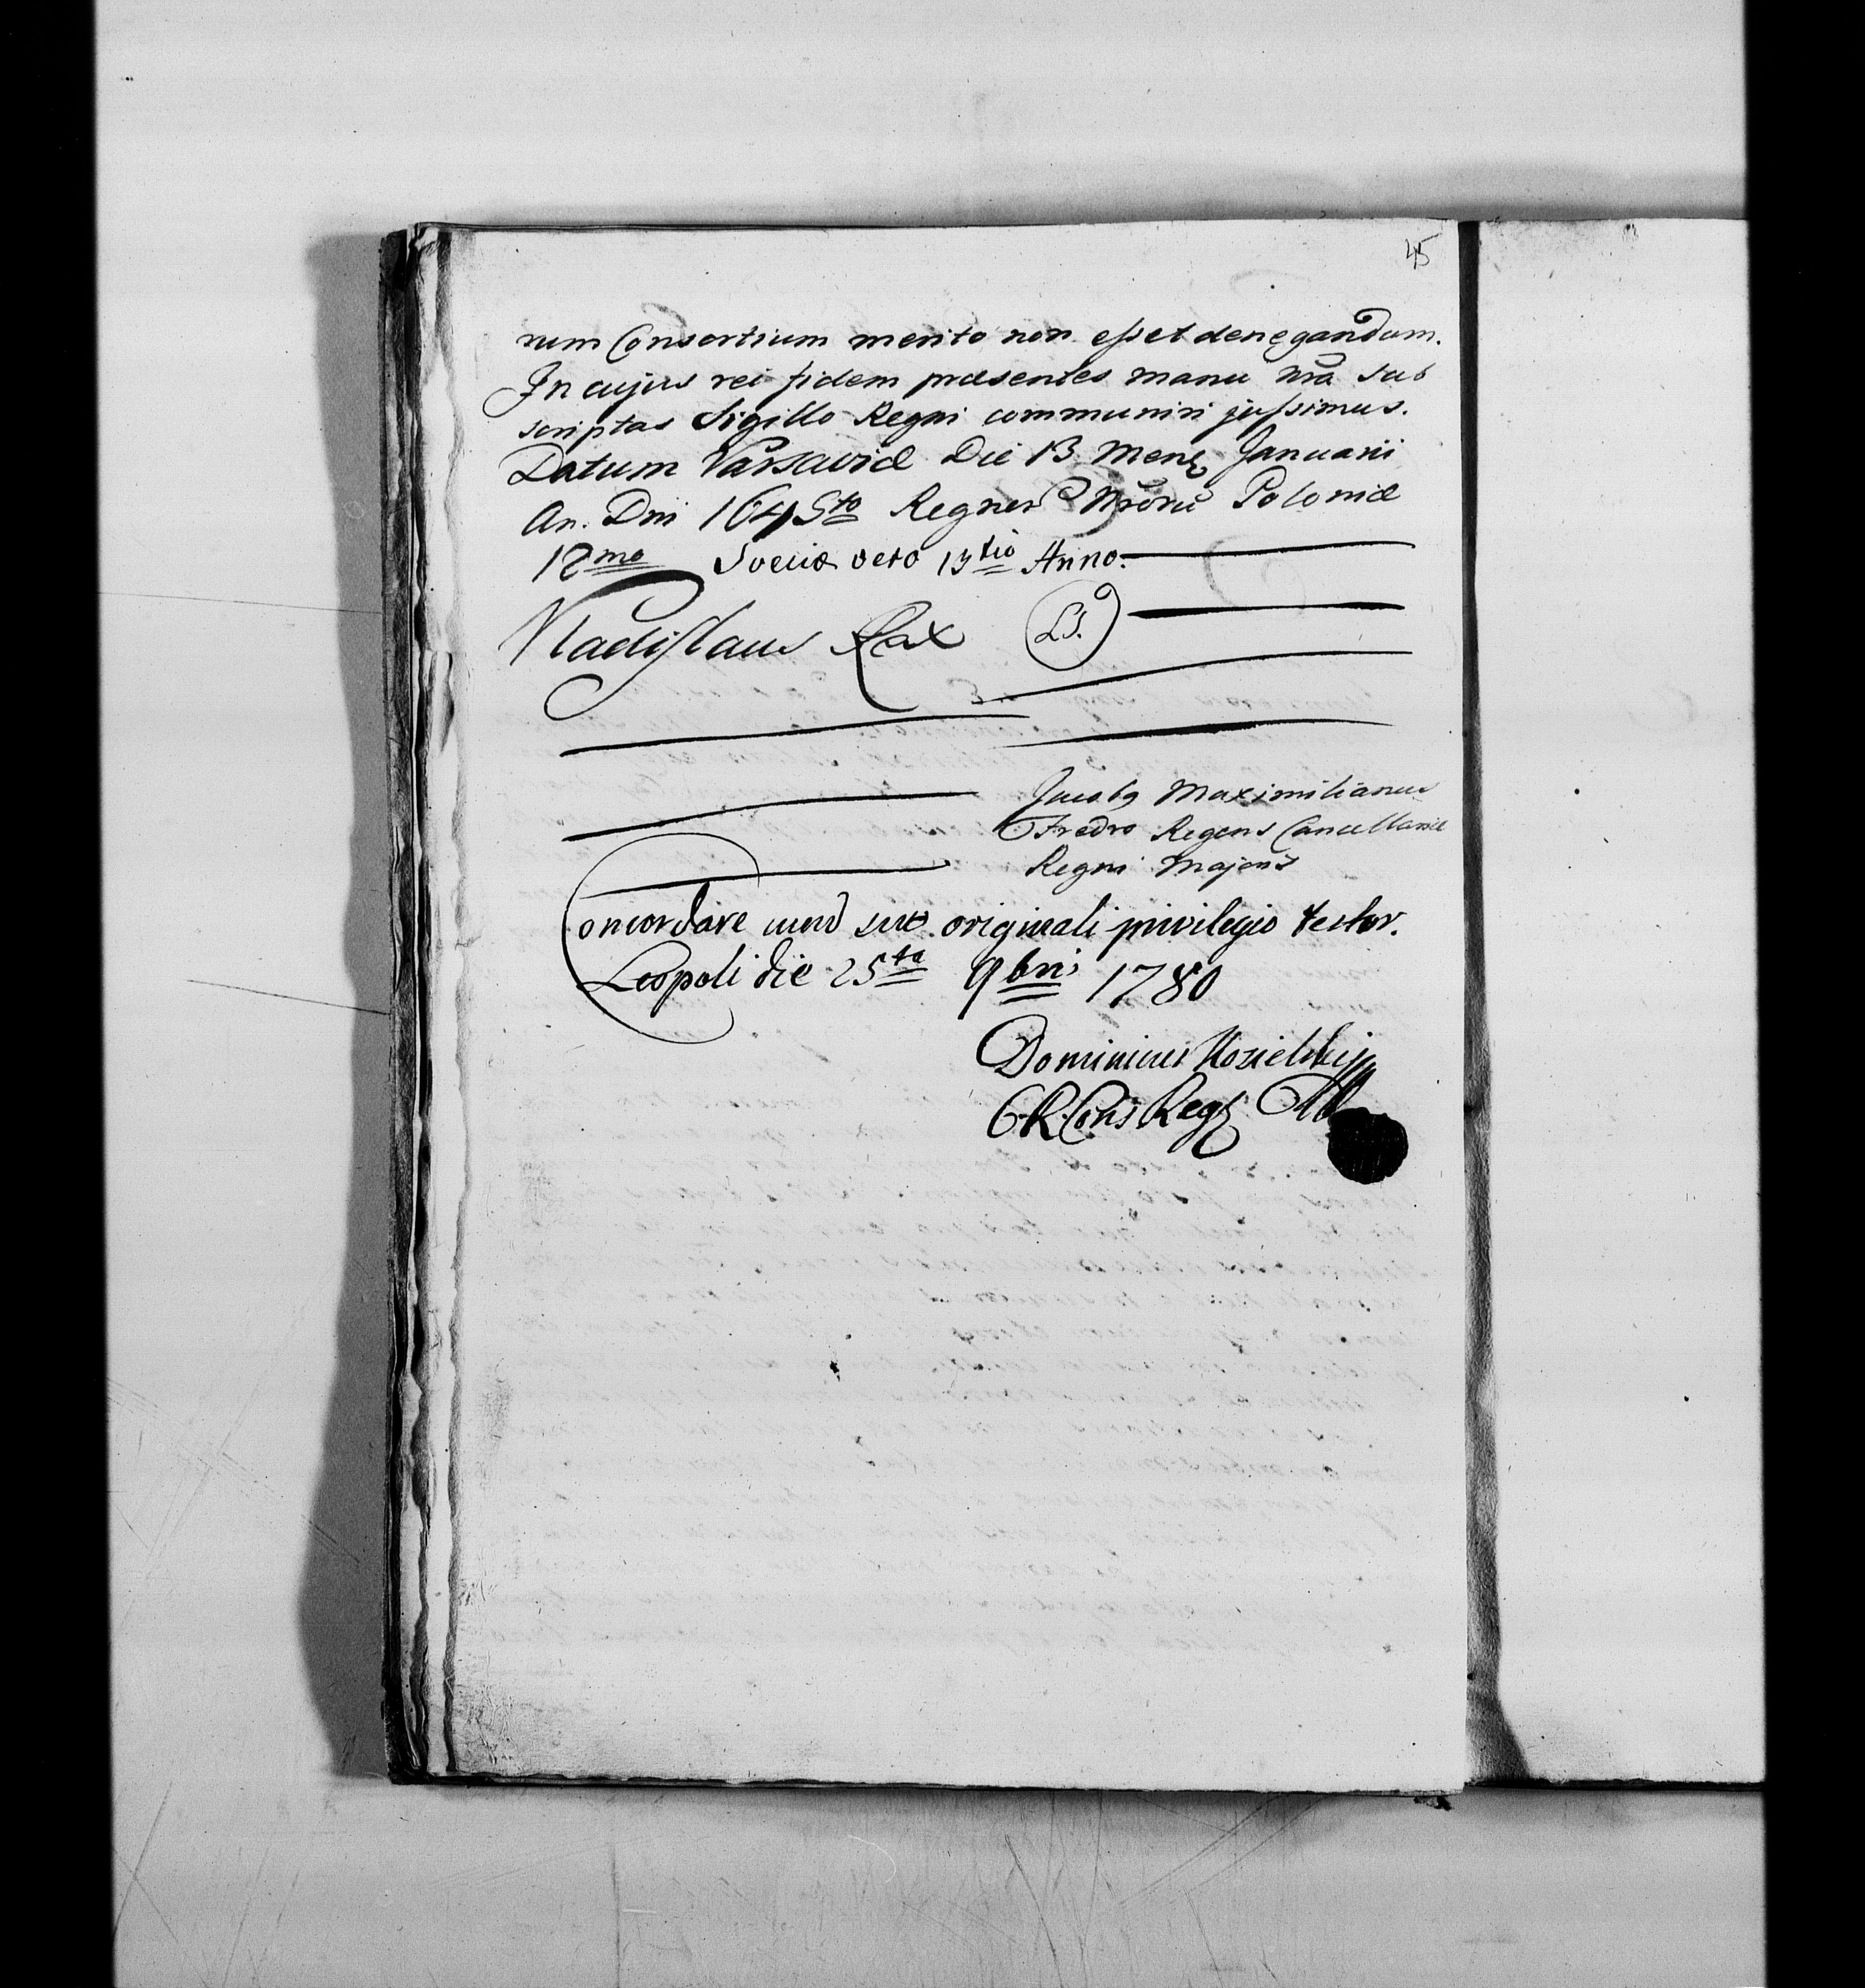 45
rum Consortium merito non esset denegandum.
In cujus rei fidem præsentes manu nrã sub
scriptas Sigillo Regni communiri jussimus.
Datum Varsaviæ Die 13 Mens Januarii
An. Dni 1645to Regnor Nrorũ Poloniæ
12mo Sveciæ vero 13tio Anno.
Vladislaus Rex LS.
Jacobg Maximilianus
Fredro Regens Cancellariæ
Regni Majoris
Concordare cum suo originali privilegio testor.
Leopoli die 25ta 9bris 1780
Dominicus Kosielski
C.R. Cons Reg